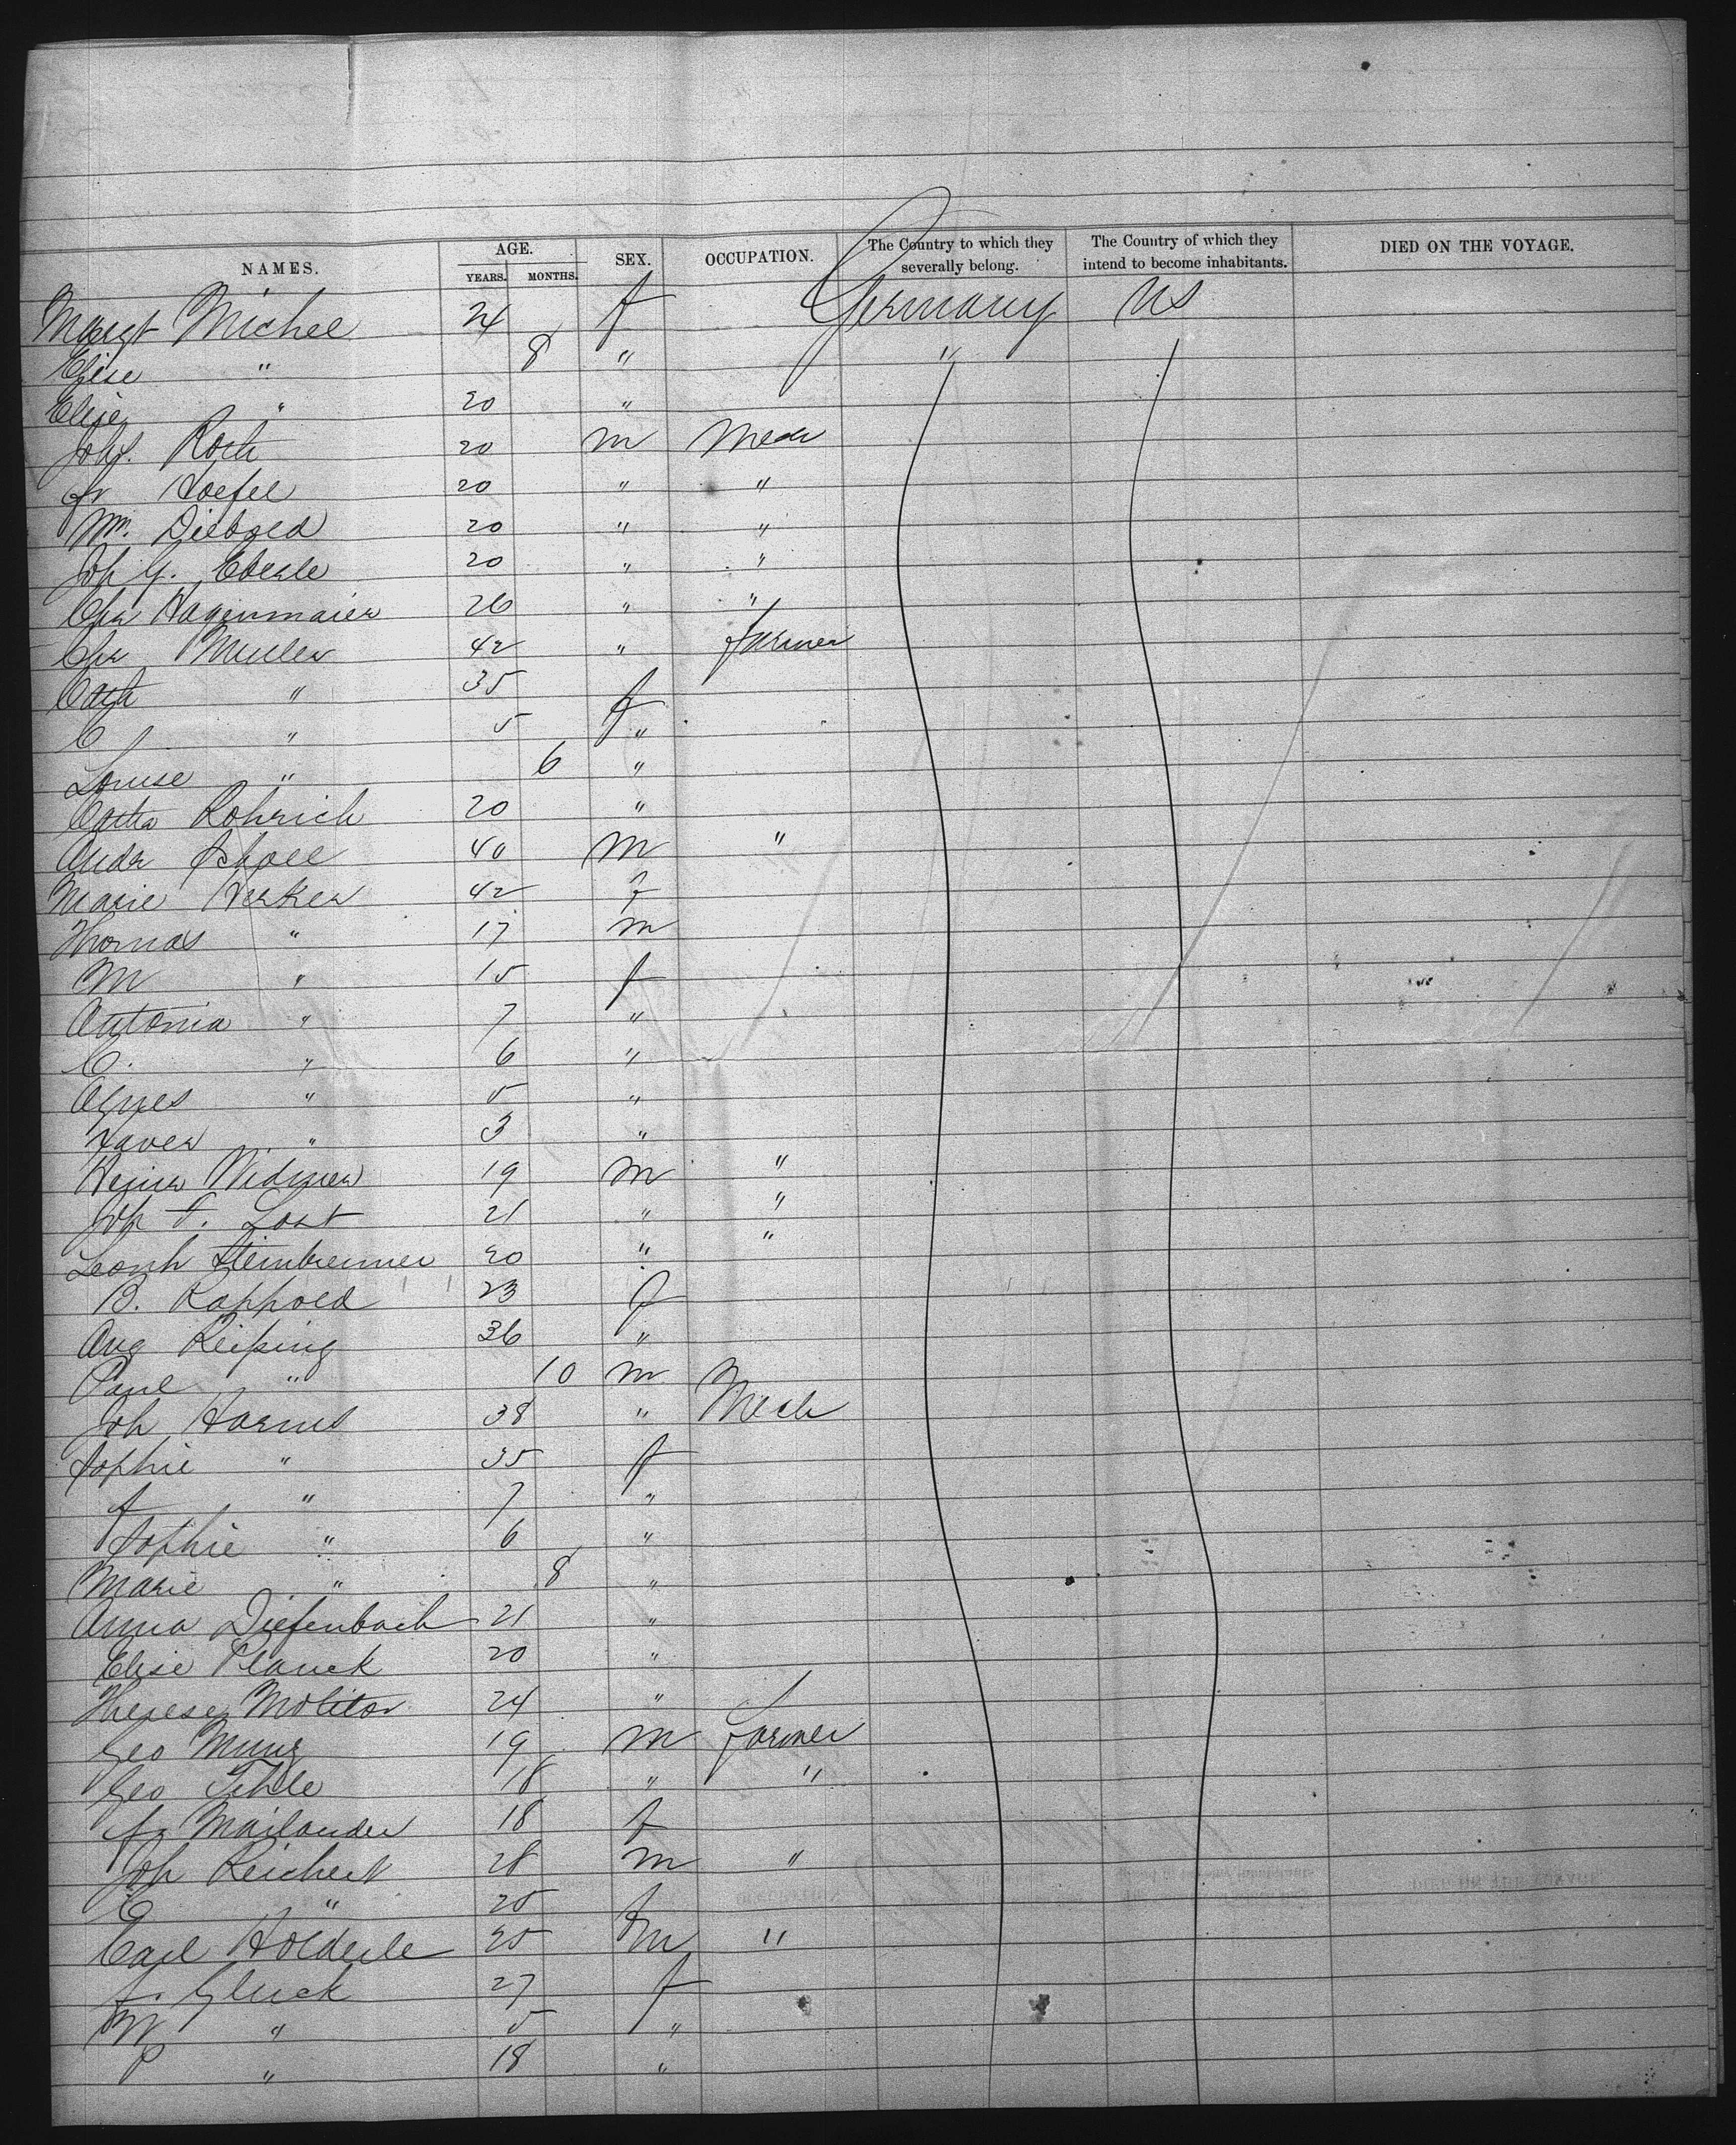 NAMES. AGE. YEARS. MONTHS. SEX. OCCUPATION. The Country to which they severally belong. The Country of which they intend to become inhabitants. DIED ON THE VOYAGE.
Margt Michel 24 f Germany US
Elise " 8 " "
Elise " 20 "
Joh. Roth 20 m Mech
Fr Hoefel 20 " "
Wm. 20 " "
Joh G. Eberle 20 " "
Chr Hagenmaier 26 " "
Chr Muller 42 " farmer
Cath " 35 f
C " 5 "
Louise " 6 "
Catha Rohrich 20 "
Andr Scholl 40 m "
Marie Herker 42 f
Thomas " 17 m
M " 15 f
Antonia " 7 "
C. " 6 "
Agnes " 5 "
Xaver " 3 "
Heinr Widmer 19 m "
Joh F. 21 " "
Leonh Steinbrenner 20 " "
B. Rappold 23 f
Aug 36 "
Paul " 10 m
Joh Harms 38 " Mech
Sophie " 35 f
f " 7 "
Sophie " 6 "
Marie " 8 "
Anna Diefenbach 21 "
Elise Planck 20 "
Therese Molitor 24 "
Geo Munz 19 m farmer
Geo 18 " "
Fr Mailander 18 f
Joh Reichert 28 m "
C " 25 f
Carl Holderle 25 m "
F. Gluck 27 f
W " 5 "
P " 18 "